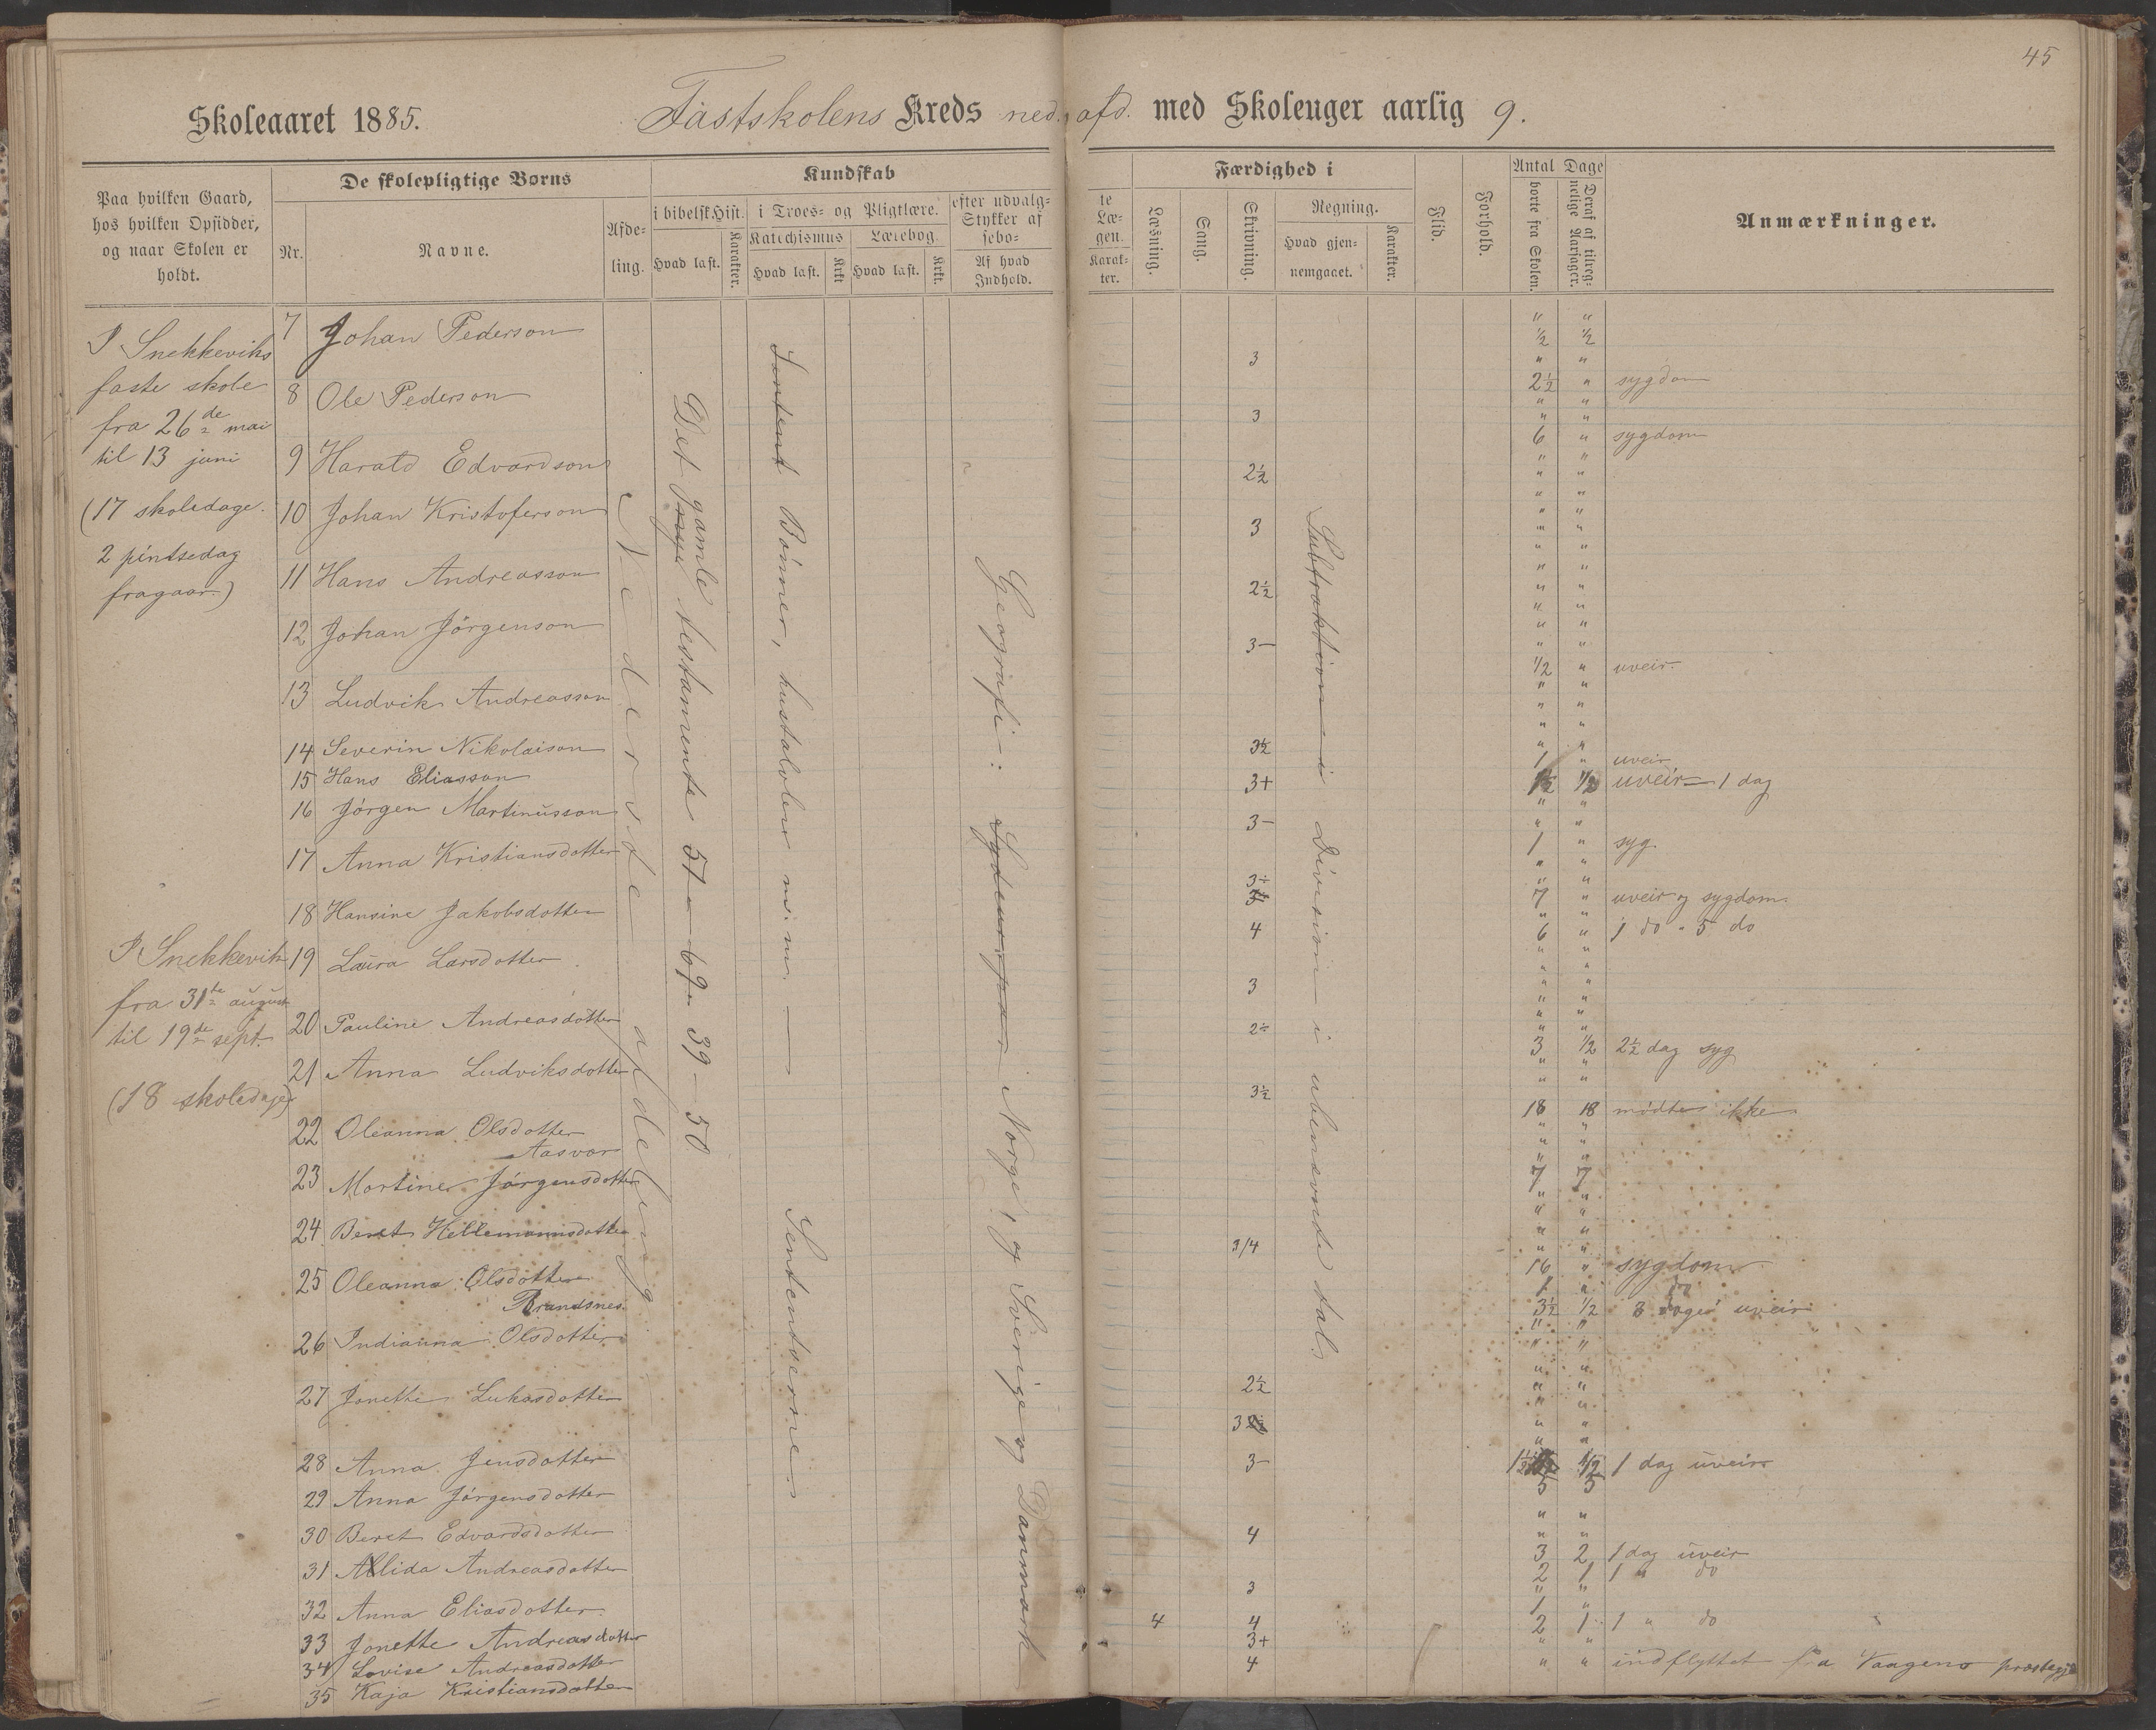 45
Skoleaaret 1885.
Fastskolens Kreds ned. afd. med Skoleuger aarlig 9.
Paa hvilken Gaard,
hos hvilken Opsidder,
og naar Skolen er
holdt.
De skolepligtige Børns
Nr.
Navne.
Afde-
ling.
Kundskab
i bibelsk Hist.
Hvad læst.
Karakter.
i Troes- og Pligtlære.
Katechismus
Hvad læst.
Krkt
Lærebog.
Hvad læst.
Krkt.
efter udvalg-
Stykker af
sebo-
Af hvad
Indhold.
te
Læ-
gen.
Karak-
ter.
Færdighed i
Læsning.
Sang.
Skrivning.
Regning.
Hvad gjen-
nemgaaet.
Karakter.
Flid.
Forhold.
Antal Dage
borte fra Skolen.
Deraf af tilreg-
nelige Aarsager.
Anmærkninger.
I Snekkeviks
faste skole
fra 26de mai
til 13 juni
(17 skoledage.
2 pintsedag
fragaar.)
I Snekkevik
fra 31te august
til 19de sept.
(18 skoledage)
7 Johan Pederson
8 Ole Pederson
9 Harald Edvardson
10 Johan Kristoferson
11 Hans Andreasson
12 Johan Jörgenson
13 Ludvik Andreasson
14 Severin Nikolaison
15 Hans Eliasson
16 Jörgen Martinusson
17 Anna Kristiansdotter
18 Hansine Jakobsdotter
19 Laura Larsdotter
20 Pauline Andreasdotter
21 Anna Ludviksdotter
22 Oleanna Olsdotter
Aasvær
23 Martine Jörgensdotter
24 Beret Hellemannsdotter
25 Oleanna Olsdotter
Brandsnes.
26 Indianna Olsdotter
27 Jonette Lukasdotter
28 Anna Jensdotter
29 Anna Jörgensdotter
30 Beret Edvardsdotter
31 Allida Andreasdotter
32 Anna Eliasdotter
33 Jonette Andreasdotter
34 Lovise Andreasdotter
35 Kaja Kristiansdotter
Nederste afdeling
Det gamle testamente 57 – 69 – 39 – 50
Bönner, hustavlen m. m. —
Geografi: Norge, og Sverige og Danmark
Subtraktion i Division i ubenævnte tal.
3
3
2½
3
2½
3–
3½
3+
3–
3÷
4
3
2÷
3½
3/4
2½
3
3–
4
3
4 4
3+
4
" "
½ ½
" "
2½ " sygdom
" "
6 " sygdom
" "
½ " uveir.
" "
1 " uveir
1½ ½ uveir – 1 dag
" "
1 " syg.
" "
7 " uveir og sygdom.
6 " 1 do " 5 do
" "
3 ½ 2½ dag syg
" "
18 18 mödte ikke
" "
7 7
" "
16 " sygdom
1 "
3½ ½ 3 dager uveir
" "
1½ ½ 1 dag uveir
5 5
" "
3 2 1 dag uveir
2 1 1 " do
" "
1 "
2 1 1 " do
" "
" " indflyttet fra Vaagens præstegj